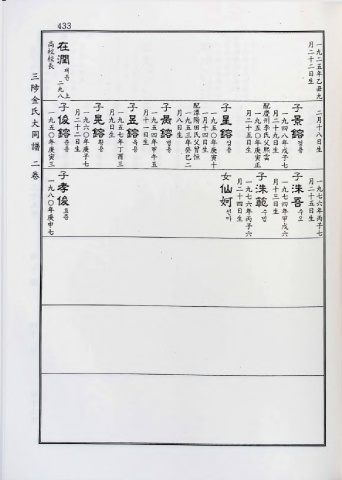 433
三陟金氏大同譜 二卷
一九二五年乙丑九
月二十二日生
在潤 재윤
高校校長
二月十八日生
子 景鎔 경용
一九四八年戊子七
月二十九日生
配慶州李氏父熙雲
一九五〇年庚寅正
月二十日生
子 星鎔 성용
一九五〇年庚寅十
一月十四日生
配潭陽田氏父晳恒
一九五三年癸巳二
月八日生
子 黃鎔
一九五四年甲午五
月二十一日生
子 昱鎔 욱용
一九五七年丁酉三
月九日生
子 晃鎔 황용
一九六〇年庚子七
月二十二日生
子 俊鎔 준용
一九五〇年庚寅三
子 洙吾 수오
一九七六年丙子七
月二十五日生
子 洙範 수범
一九七四年甲戌六
月十三日生
女 仙妸 선아
一九七六年丙子六
月二十四日生
子 孝俊 효준
一九八〇年庚申七